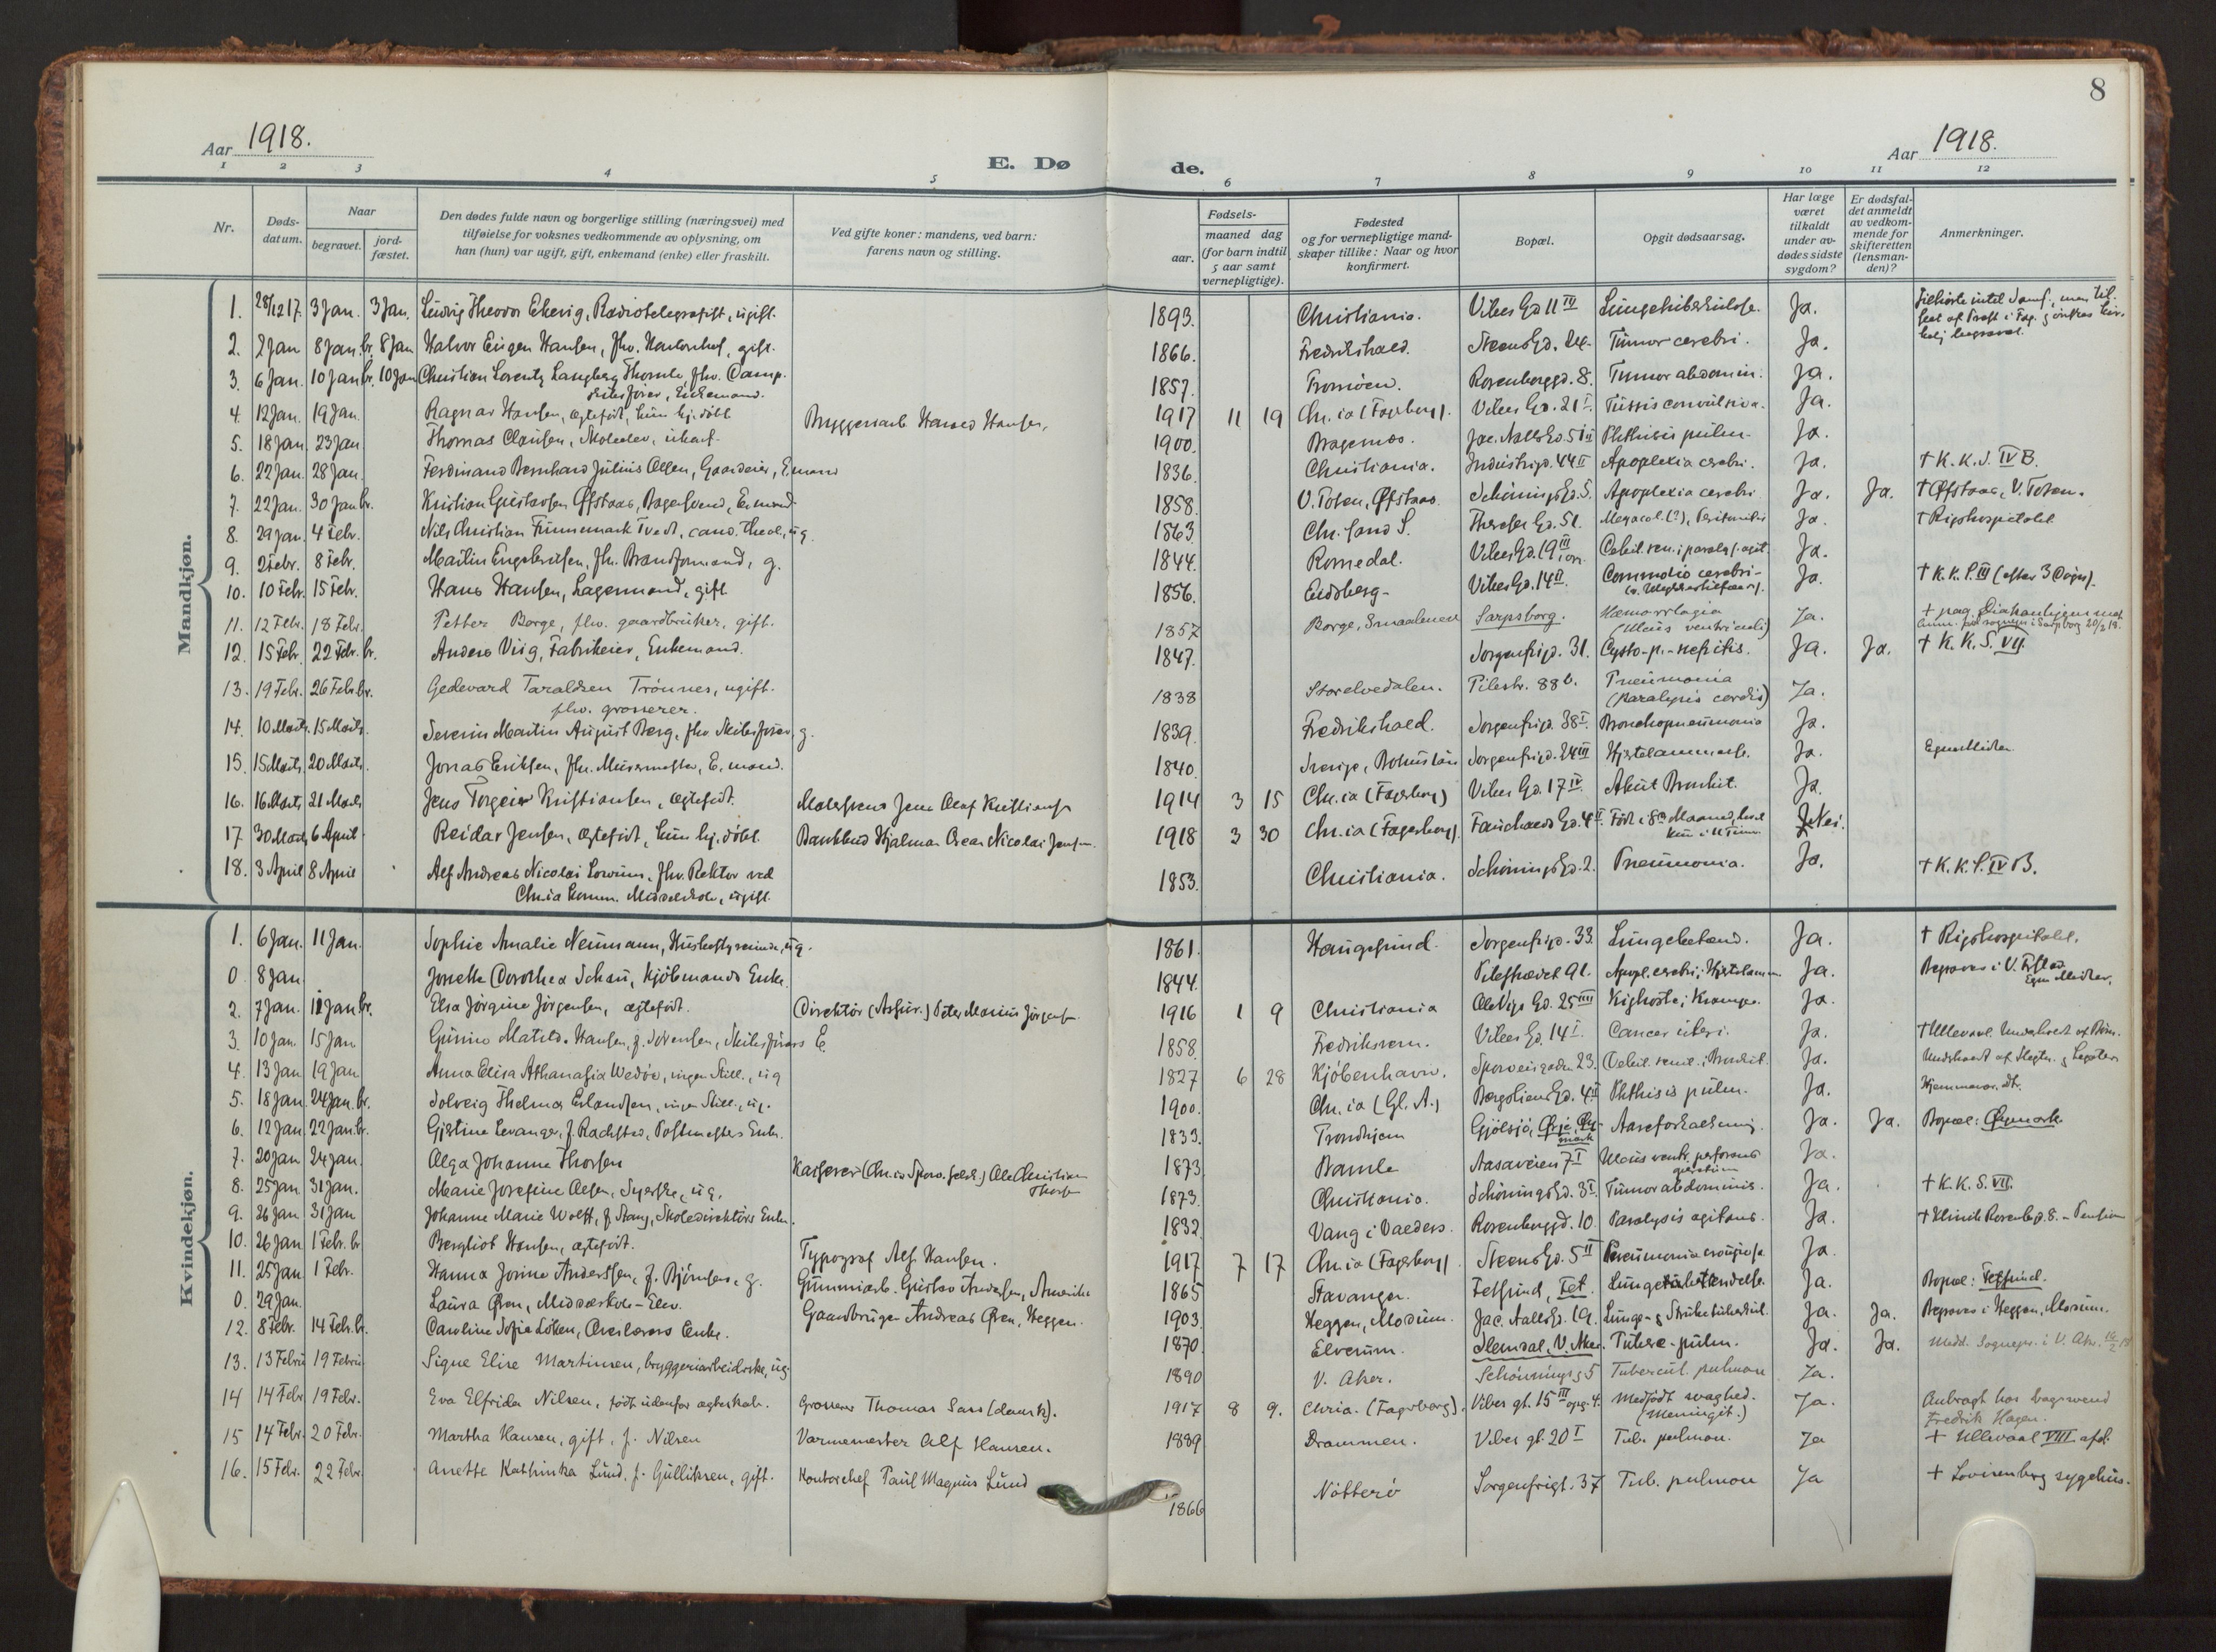 8
Aar 1918. E. Døde. Aar 1918.
1 2 3 4 5 6 7 8 9 10 11 12
Nr.
Døds-datum.
Naar
begravet.
jord-fæstet.
Den dødes fulde navn og borgerlige stilling (næringsvei) med
tilføielse for voksnes vedkommende av oplysning, om
han (hun) var ugift, gift, enkemand (enke) eller fraskilt.
Ved gifte koner: mandens, ved barn:
farens navn og stilling.
Fødsels-
aar. maaned dag
(for barn indtil
5 aar samt
vernepligtige).
Fødested
og for vernepligtige mand-
skaper tillike: Naar og hvor
konfirmert.
Bopæl.
Opgit dødsaarsag.
Har læge
været
tilkaldt
under av-
dødes sidste
sygdom?
Er dødsfal-
det anmeldt
av vedkom-
mende for
skifteretten
(lensman-
den)?
Anmerkninger.
Mandkjøn.
1. 28/12 17. 3 Jan. 3 Jan. Ludvig Theodor Ekevig, Radiotelegrafist, ugift. 1893. Christiania. Vibes Gd 11 IV Lungetuberkulose. Ja.
2. 2 Jan 8 Jan. br. 8 Jan Halvor Eugen Hansen, fhv. gift. 1866. Fredrikshald. Steens Gd. 24. Tumor cerebri. Ja.
3. 6 Jan. 10 Jan br. 10 Jan Christian Lorentz Langberg Thornle fhv. Damp-
skibsfører, Enkemand. 1857. Tromöen. Rosenborggd. 8. Tumor abdomin. Ja.
4. 12 Jan. 19 Jan. Ragnar Hansen, ægtefödt, kun hj. döbt. Bryggeriarb. Harald Hansen, 1917 11 19 Chr.ia (Fagerborg). Vibes Gd. 21 I. Tussis convulsiva. Ja.
5. 18 Jan. 23 Jan Thomas Clausen, Skoleelev, ukonf. 1900. Bragernes. Jac. Aalls Gd. 51 II Phthisis pulm. Ja.
6. 22 Jan. 28 Jan. Ferdinand Bernhard Julius Olsen, Gaardeier, E.mand 1836. Christiania. Industrigd. 44 II Apoplexia cerebri. Ja. † K. K. S. IV B.
7. 22 Jan. 30 Jan br. Kristian Gustavsen Øfstaas, Bagersvend, E.mand. 1858. V. Toten, Øfstaas Schönings Gd. 5. Apoplexia cerebri Ja. Ja. † Øfstaas, V. Toten.
8. 29 Jan. 4 Febr. Nils Christian Finnemark Tvedt, cand. theol., ug. 1863. Chr. sand S. Thereses Gd. 51. Megacol. (?), Peritonitis Ja. † Rigshospitalet
9. 2 Febr. 8 Febr. Martin Engebretsen, fhv. Brandformand, g. 1844. Romedal. Vibes Gd. 19 III Debil. sen. i paralys. agit. Ja.
10. 10 Febr. 15 Febr. Hans Hansen, Lagermand, gift. 1856. Eidsberg. Vibes Gd. 14 II. Commotio cerebri Ja. † K. K. S. III (efter 3 Døgn).
11. 12 Febr. 18 Febr. Petter Borge, fhv. gaardbruker, gift. 1857 Borge, Smaalenene Sarpsborg. Hæmorrhagia
(Ulcus ventriculi) Ja. † paa Diakonhjemmet
12. 15 Febr. 22 Febr. br. Anders Viig, Fabrikeier, Enkemand. 1847. Sorgenfrigd. 31. Cysto-p.-nefritis. Ja. Ja. † K. K. S. VII.
13. 19 Febr. 26 Febr br. Gedevard Taraldsen Trönnes, ugift.
fhv. grosserer. 1838 Storelvedalen. Pilestr. 88 b. Pneumonia
(Paralysis cordis) Ja.
14. 10 Marts. 15 Marts. Severin Martin August Berg, fhv. Skibsfører, g. 1839. Fredrikshald. Sorgenfrigd. 38 I. Bronchopneumonia Ja.
15. 15 Marts. 20 Marts. Jonas Eriksen, fhv. Murermester, E. mand. 1840. Sverige, Bohuslän Sorgenfrigd. 24 III Hjertelammelse. Ja. Egne Midler
16. 16 Marts 21 Marts Jens Torgeir Kristiansen, ægtefödt. Malersvend Jens Olaf Kristiansen 1914 3 15 Chr.ia (Fagerborg) Vibes Gd. 17 IV. Akut Bronkit. Ja.
17 30 Marts 6 April. Reidar Jensen, ægtefödt, kun hj. döbt. Bankbud Hjalmar Oscar Nicolai Jensen. 1918 3 30 Chr.ia (Fagerborg). Fauchalds Gd. 4 II. Født i 8de Maaned, levet
kun i 11 Timer. Nei.
18. 3 April 8 April Alf Andreas Nicolai Lovum, fhv. Rektor ved
Chr.ia komm. Middelskole, ugift. 1853. Christiania. Schönings Gd. 2. Pneumonia. Ja. † K. K. S. IV B.
Kvindekjøn.
1. 6 Jan. 11 Jan. Sophie Amalie Neumann, Husbestyrerinde, ug. 1861. Haugesund. Sorgenfrigd. 33. Lungebetænd. Ja. † Rigshospitalet.
0 8 Jan. Josette Dorothea Schau, Kjöbmands Enke. 1844. Pilestrædet 91. Apopl. cerebri; Hjertelamm. Ja. Begraves i V. Egne Midler.
2. 7 Jan. 11 Jan br. Elsa Jörgine Jörgensen, ægtefödt. Direktör (Assur.) Peter Marius Jörgensen. 1916 1 9 Christiania Ole Vigs Gd. 25 IIII Kighoste; Krampe. Ja.
3. 10 Jan. 15 Jan. Gunino Matilde Hansen, f. Sörensen, Skibsførers E. 1858. Fredriksvern. Vibes Gd. 14 I. Cancer uteri. Ja. † Ullevaal. Understøttet af Börn.
4. 13 Jan 19 Jan Anna Elisa Athanasia Wedöe, ingen Still., ug 1827 6 28 Kjöbenhavn. Sporveisgaden 23. Debil. senil.; Bronkit. Ja. Understøttet af Slegtn. & Legater
5. 18 Jan. 24 Jan. br. Solveig Thelma Erlandsen, ingen Still., ug. 1900. Chr.ia (Gl. A.) Bergsliens Gd. 4 II Phthisis pulm. Ja. Hjemmevær. dt.
6. 12 Jan. 22 Jan. br. Gjertine Levanger, f. Rachstad, Postmesters Enke. 1833. Trondhjem Gjölsjö, Ørje, Øymark Aareforkalkning. Ja. Ja. Bopæl: Øymark.
7. 20 Jan 24 Jan. Olga Johanne Thorsen Kasserer (Chr.ia Sporv. selsk.) Ole Christian Thorsen 1873. Bamle Aasaveien 7 I Ulcus ventr. perforans Ja.
8. 25 Jan. 31 Jan. Marie Josefine Olsen, Syerske, ug. 1873. Christiania. Schönings Gd. 3 I. Tumor abdominis. Ja. † K. K. S. VII.
9. 26 Jan 31 Jan Johanne Marie Wolff, f. Stang, Skoledirektörs Enke. 1832. Vang i Valders. Rosenborggd. 10. Paralysis agitans. Ja. † Klinik Rosenbgd. 8. – Pension
10. 26 Jan 1 Febr. br Bergliot Hansen, ægtefödt. Typograf Alf. Hansen. 1917 7 17 Chr.ia (Fagerborg) Steens Gd. 5 II Pneumonia crouposa Ja.
11. 25 Jan 1 Febr. Hanna Josine Anderssen, f. Björnsen, g. Gummiarb. Gustav Andersen, Amerika 1865 Stavanger. Fetsund, Fet. Lungebetændelse. Ja. Bopæl: Fetsund.
0. 29 Jan. Laura Øren, Middelskole-Elev. Gaardbruger Andreas Øren, Heggen. 1903. Heggen, Modum. Jac. Aalls Gd. 19. Lunge- & Strubetuberkul. Ja. Ja. Begraves i Heggen, Modum.
12. 8 Febr. 14 Feb. br. Caroline Sofie Löken, Overlærers Enke. 1870. Elverum. Slemdal, V. Aker. Tuberc. pulm. Ja. Ja. Medd. Sognepr. i V. Aker.
13. 13 Februar 19 Februar Signe Elise Martinsen, bryggeriarbeiderske, ug. 1890 V. Aker. Schönningsg 5 Tubercul. pulmon Ja.
14 14 Febr. 19 Febr. Eva Elfrida Nilsen, födt udenfor ægteskab. Grosserer Thomas Sass (dansk). 1917 8 9. Chria. (Fagerborg). Vibes gt. 15 III opg. 4. Medfödt svaghed.
(Meningit.) Ja. Anbragt hos bagersvend
Fredrik Hagen.
15 14 Febr. 20 Febr. Martha Hansen, gift, f. Nilsen Varmemester Alf Hansen. 1889 Drammen. Vibes gt. 20 I Tub. pulmon. Ja † Ullevaal VIII afd.
16. 15 Febr. 22 Febr. Anette Kathinka Lund, f. Gulliksen, gift. Kontorchef Paul Magnus Lund 1866 Nötterö Sorgenfrigt. 37 Tub. pulmon Ja † Lovisenberg sygehus.